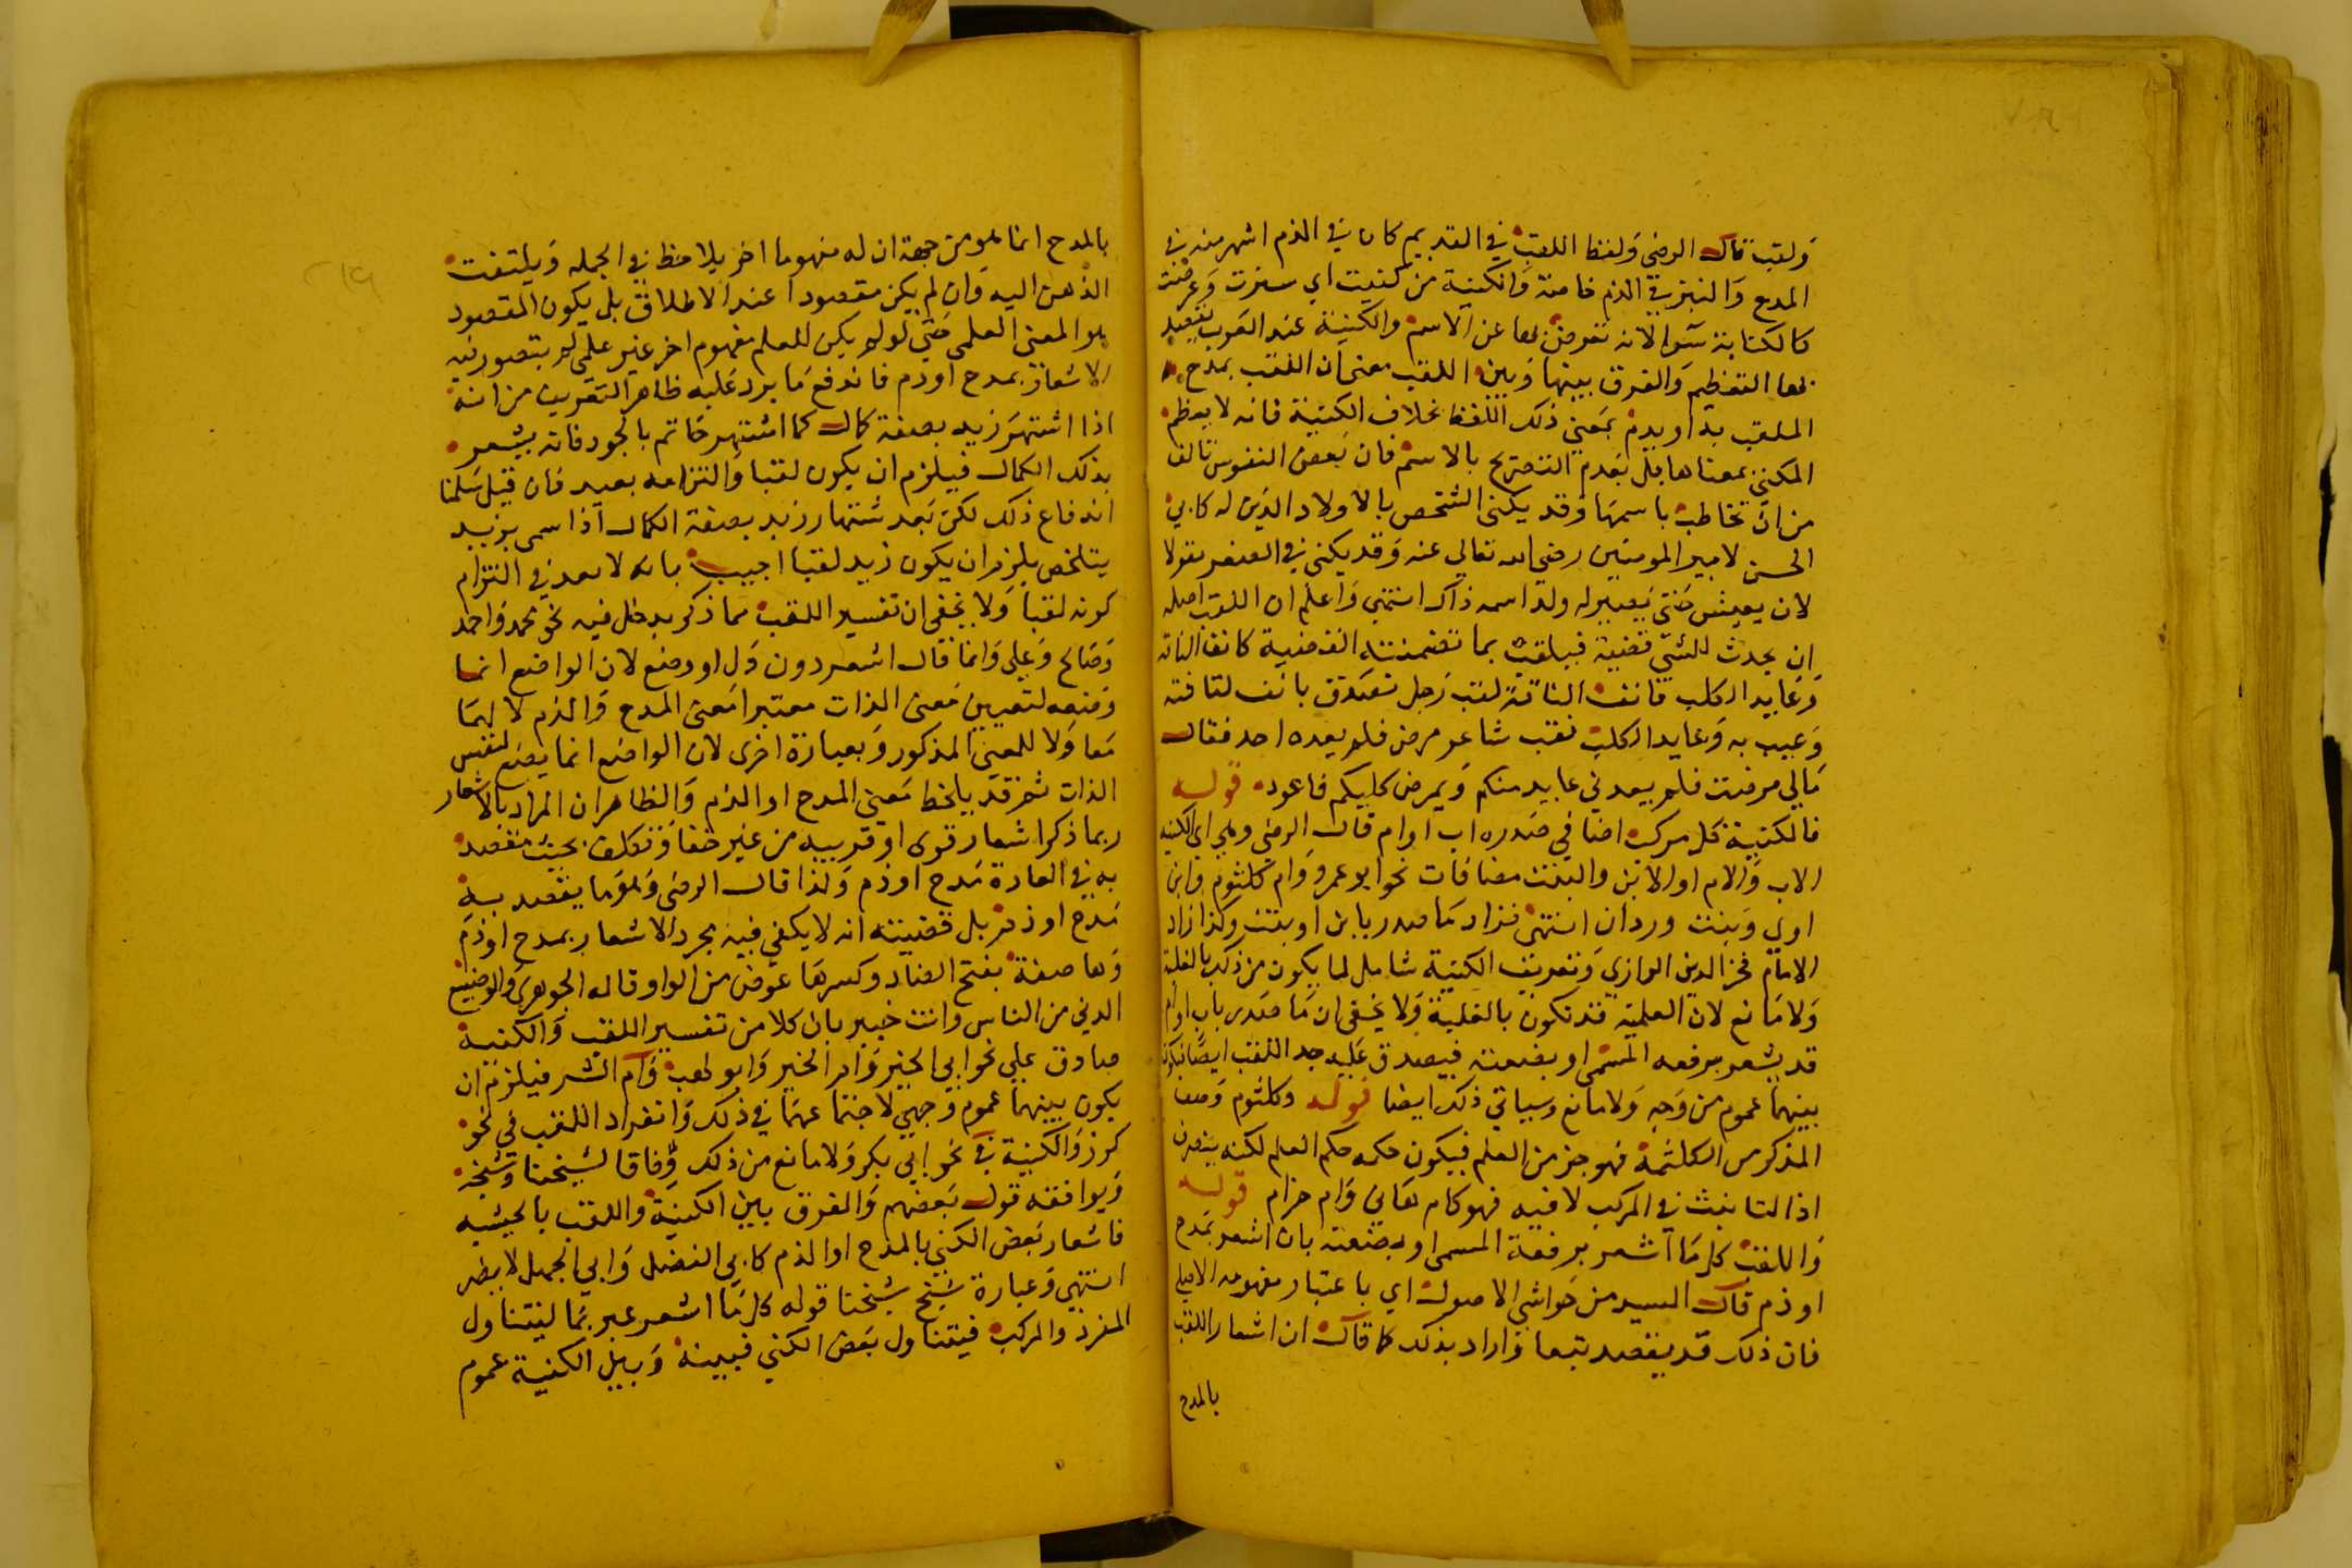 ولقب قال الرضي ولفظ اللقب في القديم كان في الذم اشهر منه في
المدح والنبز في الذم خاصة والكنية من كنيت اي سترت وعرضت
كالكناية سوا لانه تعرض بها عن الاسم والكنية عند العرب يقصد
بها التعظيم والفرق بينها وبين اللقب معنى ان اللقب يمدح
الملقب به او يذم بمعنى ذلك اللفظ بخلاف الكنية فانه لا يعظم
المكنى بمعناها بل بعدم التصريح بالاسم فان بعض النفوس تانف
من ان تخاطب باسمها وقد يكنى الشخص بالاولاد الذين له كابي
الحسن لامير المومنين رضي الله تعالى عنه وقد يكنى في الصغر تفولا
لان يعيش حتى يصير له ولد اسمه ذاك انتهى واعلم ان اللقب اصله
ان يحدث للشي قضية فيلقب بما تضمنته القضية كانف الناقة
وعايد الكلب فانف الناقة لقب رجل تصدق بانف لناقته
وعيب به وعايد الكلب لقب شاعر مرض فلم يعده احد فقال
مالي مرضت فلم يعدني عايد منكم ويمرض كلبكم فاعود قوله
فالكنية كل مركب اضافي صدره اب او ام قال الرضي وهي اي الكنية
الاب والام او الابن والبنت مضافات نحو ابو عمرو وام كلثوم وابن
اوى وبنت وردان انتهى فزاد ما صدر بابن او بنت وكذا زاد
الامام فخر الدين الرازي وتعريف الكنية شامل لما يكون من ذلك بالغلبة
ولا مانع لان العلمية قد تكون بالغلبة ولا يخفى ان ما صدر باب او ام
قد يشعر برفعه المسمى او بضعته فيصدق عليه حد اللقب ايضا فيكون
بينهما عموم من وجه ولا مانع وسياتي ذلك ايضا قوله وكلثوم وصف
المذكر من الكلثمة فهو جز من العلم فيكون حكمه حكم العلم لكنه ينصرف
اذ التانيث في المركب لا فيه فهو كام هاني وام حزام قوله
واللقب كل ما اشعر برفعة المسمى او بضعته بان اشعر بمدح
او ذم قال السيد من حواشي الاصول اي باعتبار مفهومه الاصلي
فان ذلك قد يقصد تبعا واراد بذلك كما قال ان اشعار اللقب
بالمدح
بالمدح انما هو من جهة ان له مفهوما اخر يلاحظ في الجمله ويلتفت
الذهن اليه وان لم يكن مقصودا عند الاطلاق بل يكون المقصود
هو المعنى العلمي حتى لو لم يكن للعلم مفهوم اخر غير علمي لم يتصور فيه
الاشعار بمدح او ذم فاندفع ما يرد عليه ظاهر التعريف من انه
اذا اشتهر زيد بصفة كمال كما اشتهر حاتم بالجود فانه يشعر
بذلك الكمال فيلزم ان يكون لقبا والتزامه بعيد فان قيل سلمنا
اندفاع ذلك لكن بعد شتهار زيد بصفة الكمال اذا سمى بزيد
يتلخص يلزم ان يكون زيد لقبا اجيب بانه لا بعد في التزام
كونه لقبا ولا يخفى ان تفسير اللقب مما ذكر يدخل فيه نحو محمد واحمد
وصالح وعلي وانما قال اشعر دون دل او وضع لان الواضع انما
وضعه لتعيين معنى الذات معتبرا معنى المدح والذم لا لهما
معا ولا للمعنى المذكور وبعبارة اخرى لان الواضع انما يضع لنفس
الذات ثم قد يلحظ معنى المدح او الذم والظاهر ان المراد بالاشعار
بما ذكر اشعار قوي او قريبه من غير خفا وتكلف بحيث يقصد
به في العادة مدح او ذم ولذا قال الرضي وهو ما يقصد به
مدح او ذم بل قضيته انه لا يكفي فيه مجرد الاشعار بمدح او ذم
وها ضعة بفتح الضاد وكسرها عوض من الواو قاله الجوهري والوضيع
الدني من الناس وانت خبير بان كلا من تفسير اللقب والكنية
صادق على نحو ابي الخير وام الخير وابو لهب وام الشر فيلزم ان
يكون بينهما عموم وجهي لاجتماعهما في ذلك وانفراد اللقب في نحو
كرز والكنية في نحو ابي بكر ولا مانع من ذلك وفاقا لشيخنا وشيخه
ويوافقه قول بعضهم والفرق بين الكنية واللقب بالحيثيه
فاشعار بعض الكنى بالمدح او الذم كابي الفضل وابي الجهل لا يضر
انتهى وعبارة شيخ شيخنا قوله كل ما اشعر عبر بما ليتناول
المفرد والمركب فيتناول بعض الكنى فبينه وبين الكنية عموم